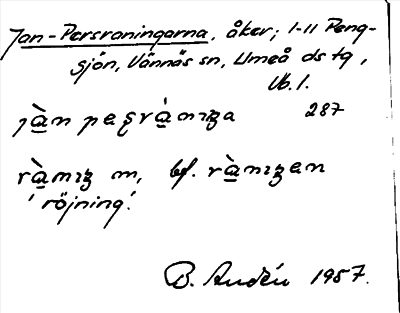 Jan-Persraningarna, åker; 1-11 Peng-
sjön, Vännäs sn, Umeå ds tg,
Vb. l.
jàn peʂrànıʒa 287
rànıʒ m, bf. ràniʒen
'röjning'.
B. Audén 1957.